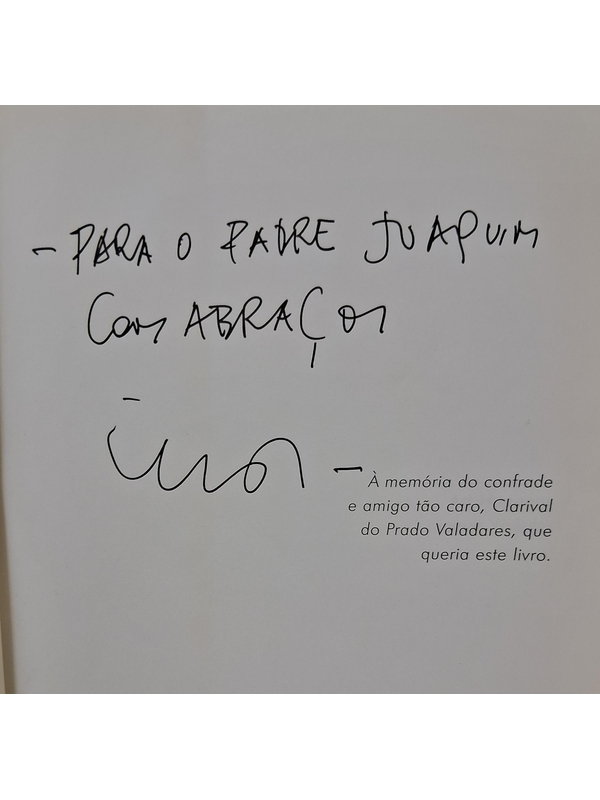 - PARA O PADRE JOAQUIM
Com ABRAÇOS
À memória do confrade
e amigo tão caro, Clarival
do Prado Valadares, que
queria este livro.